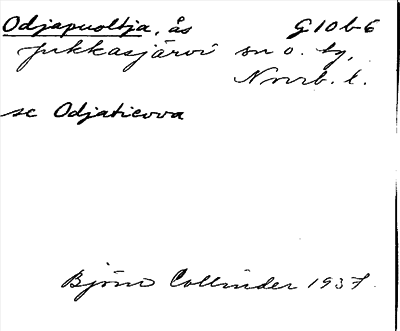 Odjapuoltja, ås G10b-6
Jukkasjärvi sn o. tg,
Norrb. l.
se Odjatievva
Björn Collinder 1937.